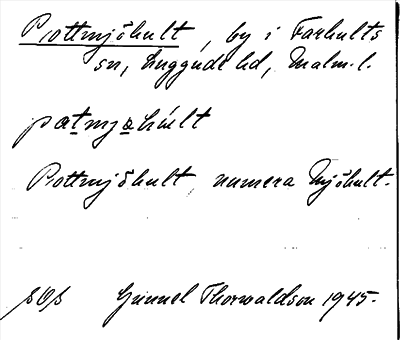 Pottmjöhult, by i Farhults
sn, Luggude hd, Malm. l.
patmjahult
Pottmjöhult, numera Mjöhult.
Gunnel Thorwaldson 1945.